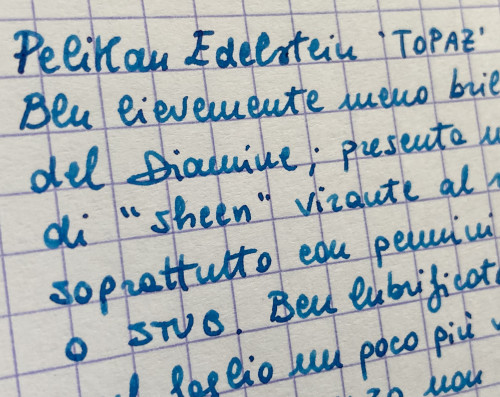 Pelikan Edelstein 'TOPAZ'
Blu lievemente meno bril
del Diamine; presenta
di "sheen" virante al
soprattutto con pennini
o STUB. Ben lubrificat
il foglio un poco più
non